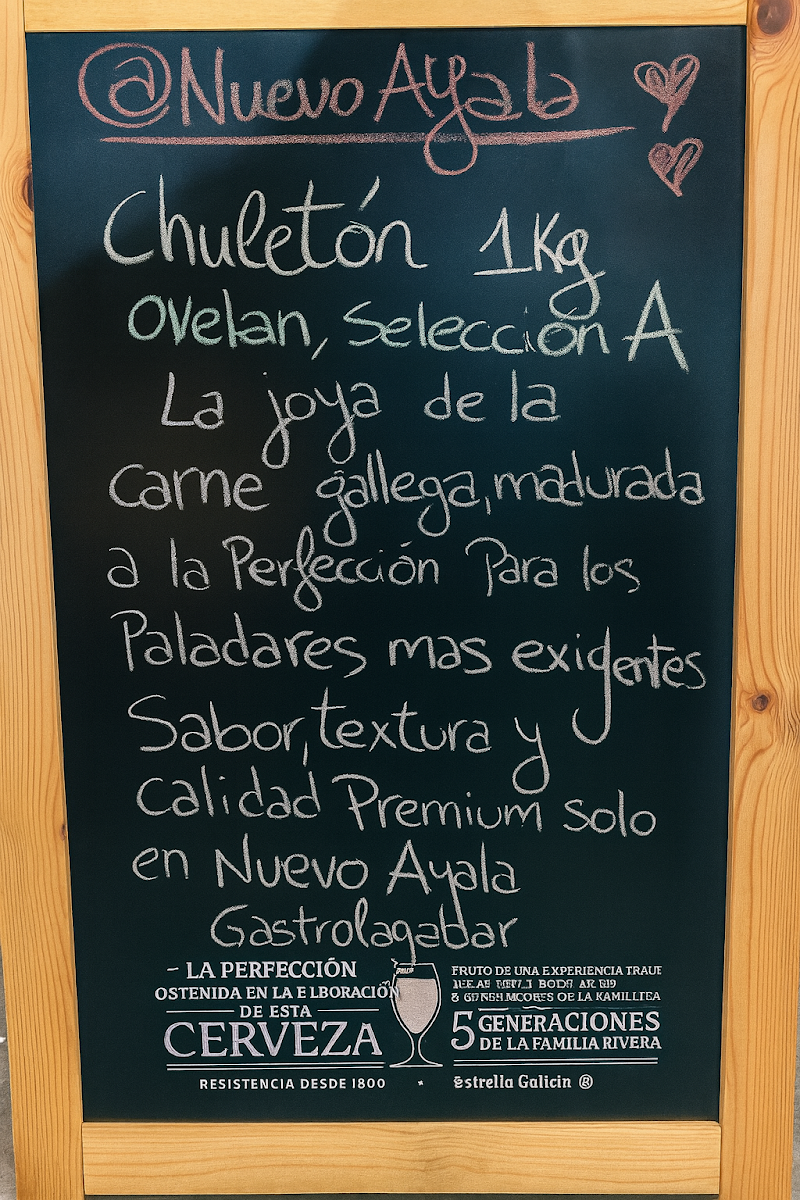 @Nuevo Ayala
Chuletón 1Kg
Ovelan, Selección A
La joya de la
carne gallega, madurada
a la Perfección Para los
Paladares mas exigentes
Sabor, textura y
calidad Premium solo
en Nuevo Ayala
Gastrolagabar
- LA PERFECCIÓN
OSTENIDA EN LA E LBORACIÓN
DE ESTA
CERVEZA
RESISTENCIA DESDE 1800
FRUTO DE UNA EXPERIENCIA TRAUE
5 GENERACIONES
DE LA FAMILIA RIVERA
Estrella Galicin ®